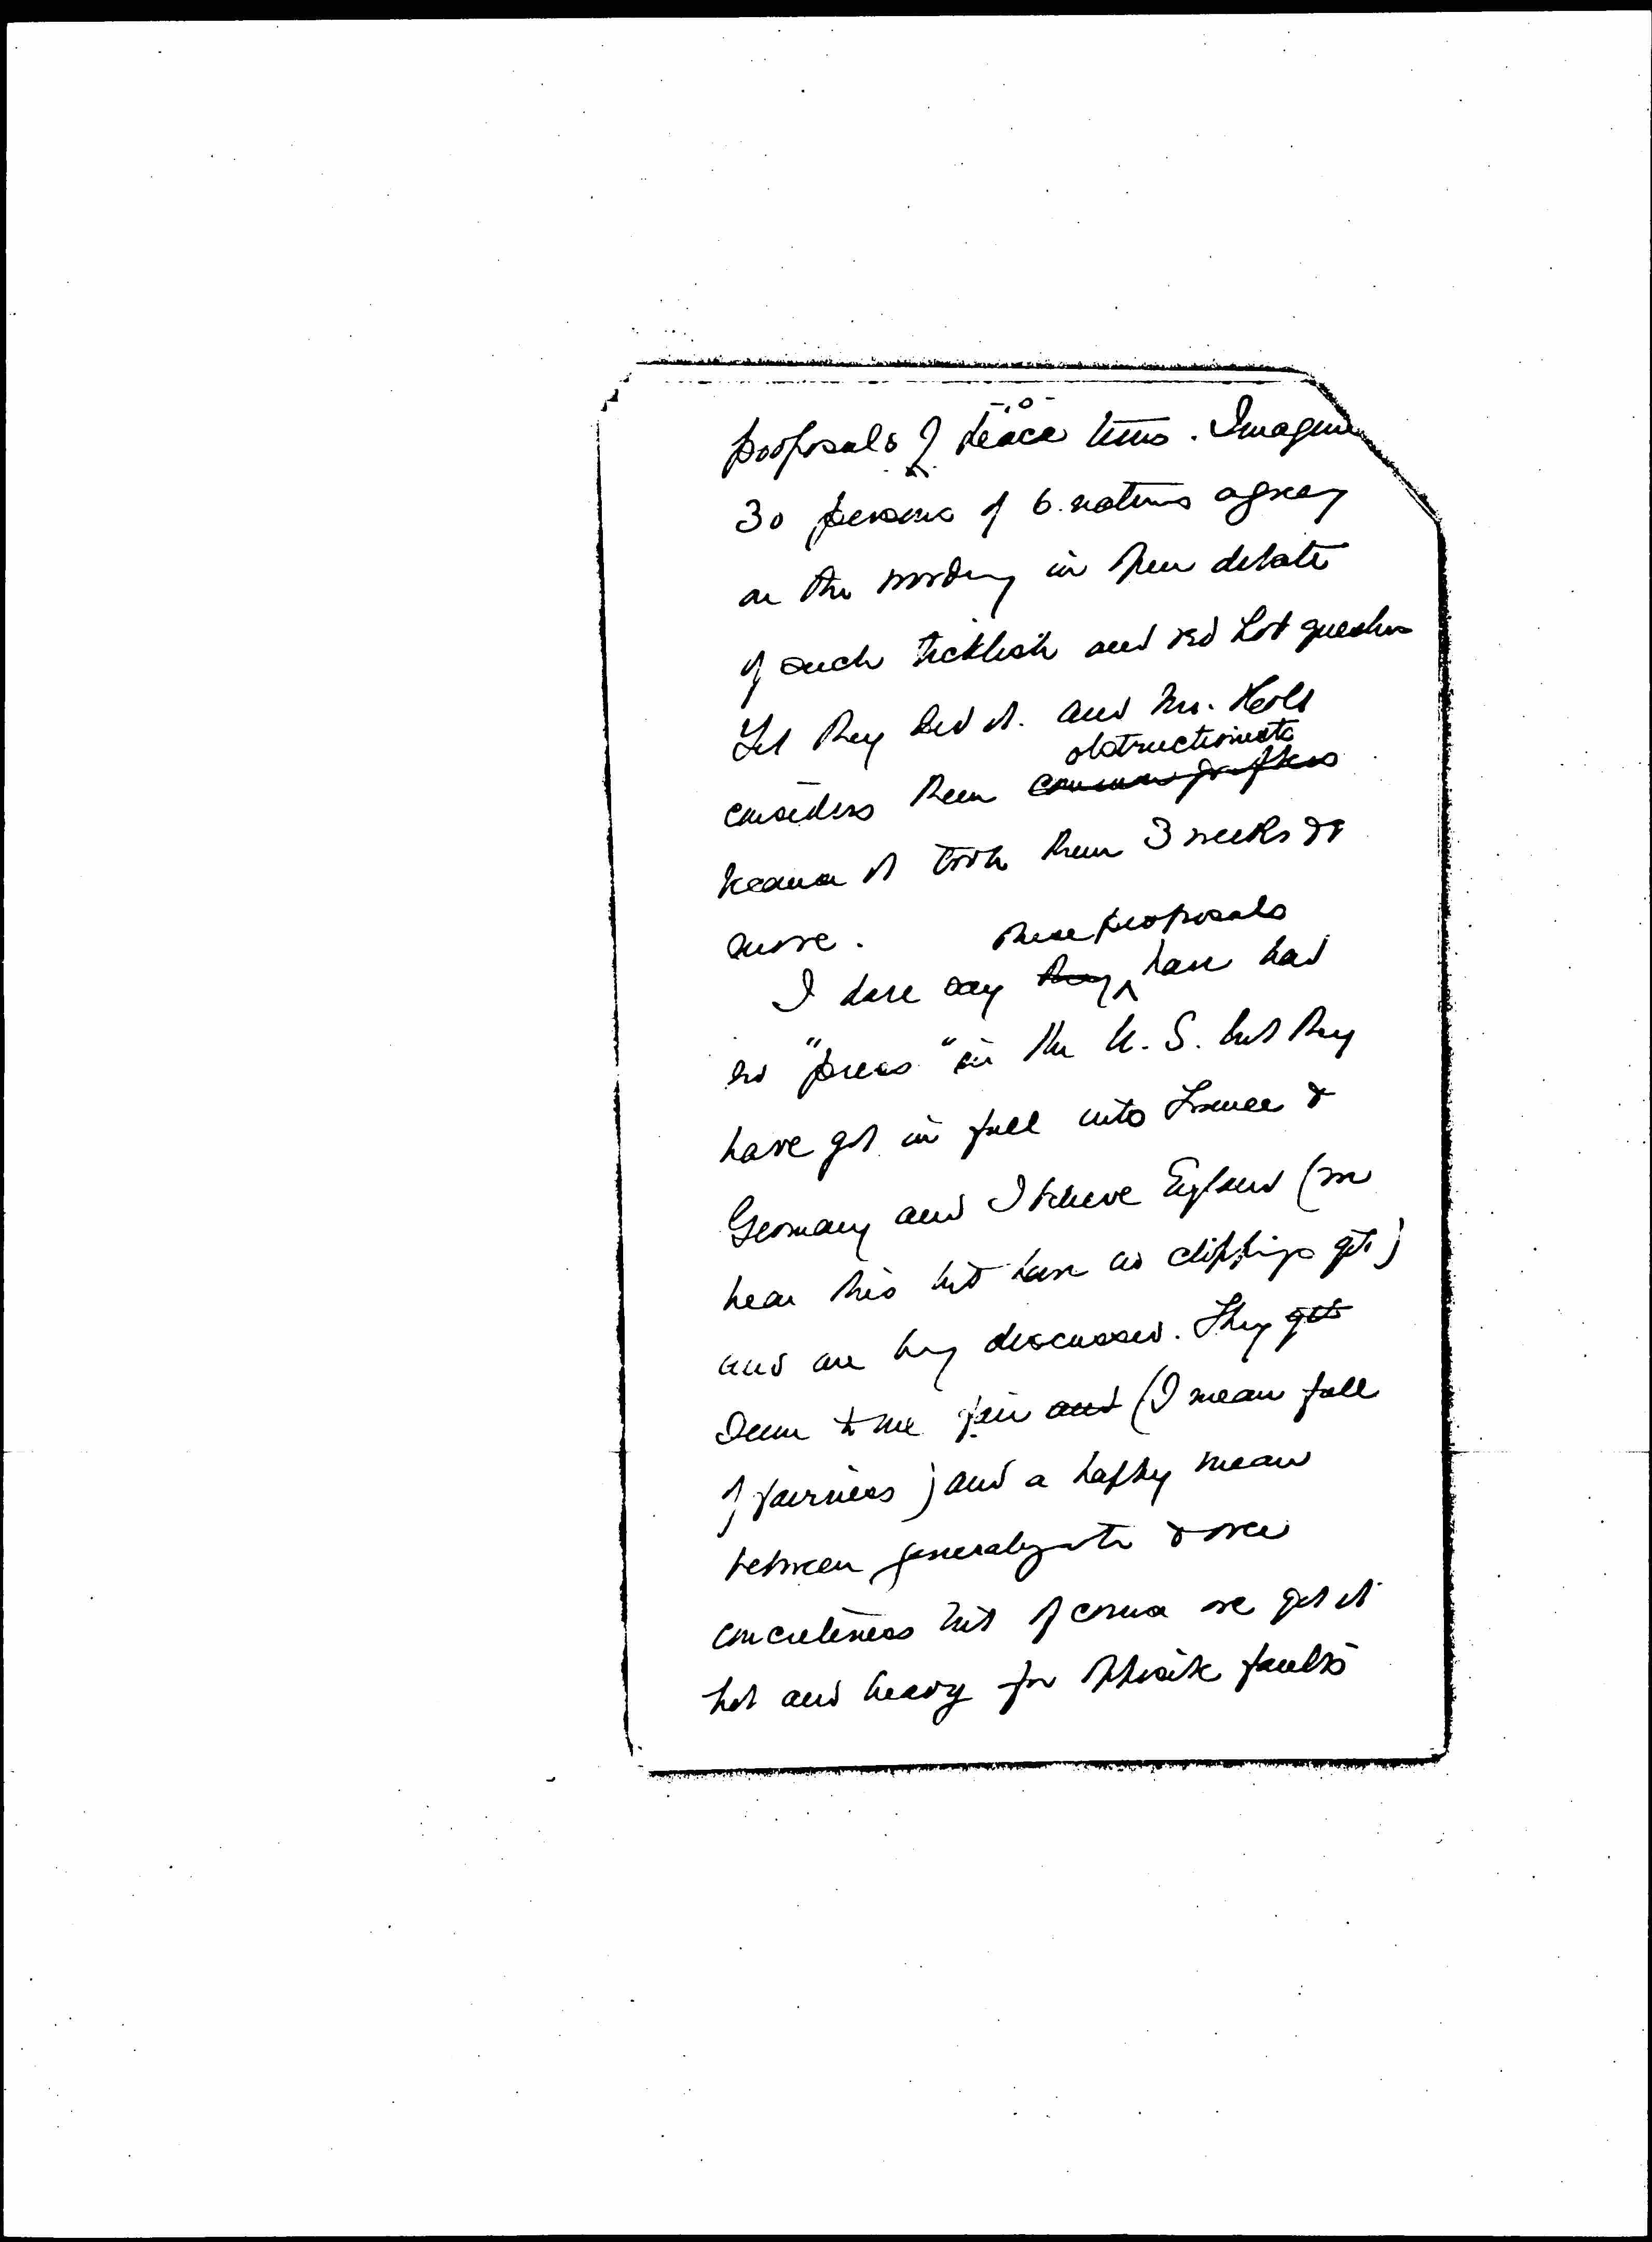 -10-
proposals of peace terms. Imagine
30 persons of 6 nations agreeing
on the wording in open debate
of such ticklish and red hot question
Yet they did it. and Mr. Holt
obstructionists
considers them common grafters
because it took them 3 weeks or
more.
these proposals
I dare say they ^ have had
no "press" in the U.S. but they
have got in full into France &
Germany and I believe England (we
hear this but have no clippings yet)
and are being discussed. They get
seem to me fair and (I mean full
of fairness) and a happy mean
between generalization & over
concreteness but of course we get it
hot and heavy for opposite faults